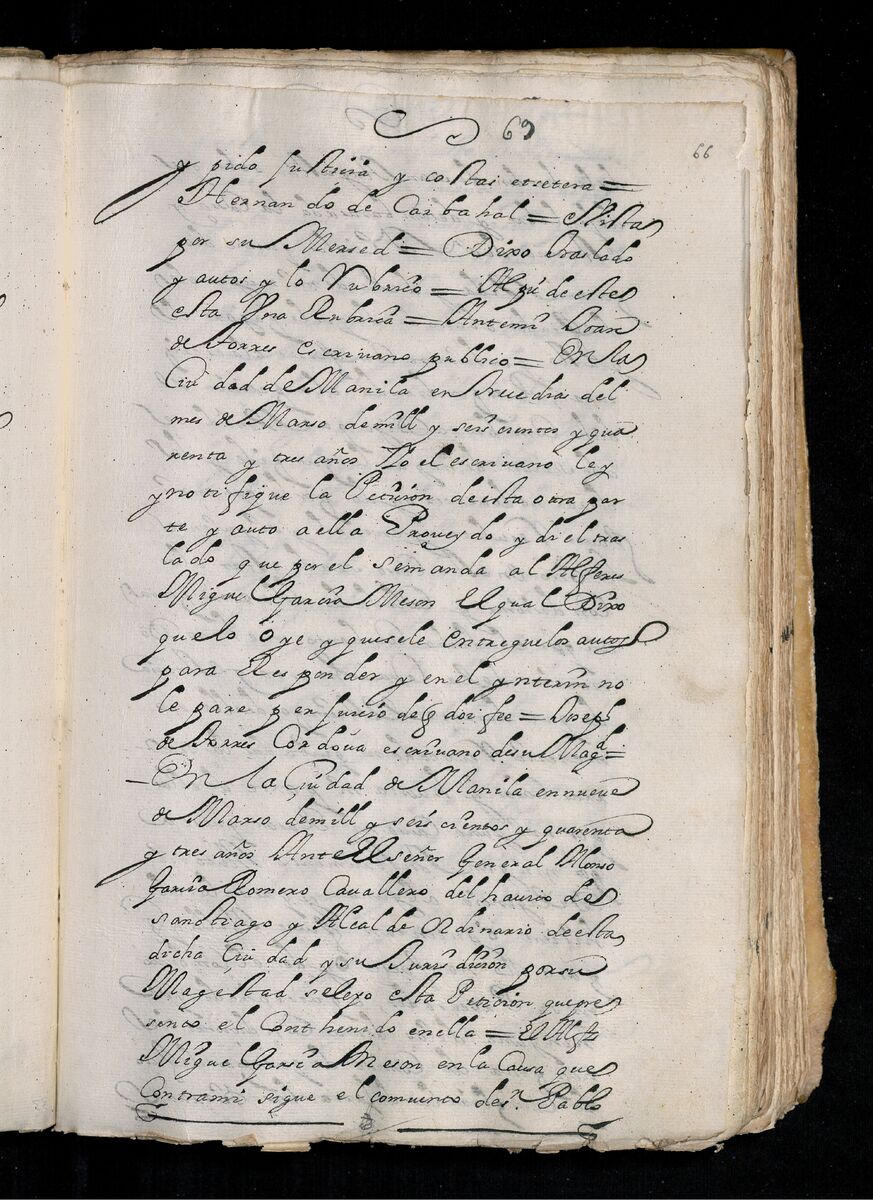 69
66
y pido justicia y costas etsetera =
Hernando de Carbahal = E vista
por su Mersed = Dixo traslado
y autos y lo Rubrico = Aqui de este
esta Una Rubrica = Antemi Joan
de Torres escrivano publico = En la
Ciudad de Manila en nueve dias del
mes de Marso de mill y seis cientos y qua
renta y tres años Yo el escrivano ley
y notifique la Peticion de esta otra par
te y auto a ella Proveydo y di el tras
lado que por el se manda al Alferes
Miguel Garcia Meson El qual Dixo
que lo oye y que se le entregue los autos
para Responder y en el ynterin no
le pare perjuicio de q doi fee = Joseph
de Torres Cordova escrivano de su Magd =
En la Ciudad de Manila en nueve
de Marso de mill y seis cientos y quarenta
y tres años Ante El señor General Alonso
Garcia Romero Cavallero del havito de
Sanctiago y Alcalde Ordinario de esta
dicha Ciudad y su Jurisdicion por su
Magestad se leyo esta Peticion que pre
sento el Conthenido en ella = El Alfz
Miguel Garcia Meson en la Causa que
Contra mi sigue el comuento de sn. Pablo